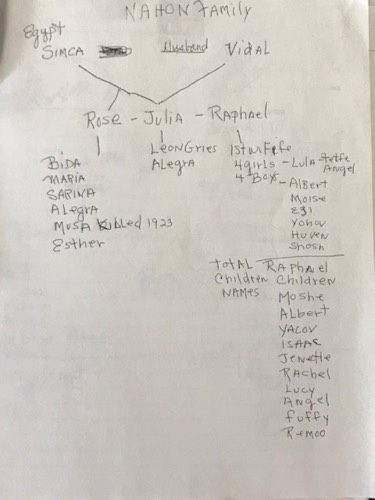 NAHON Family
Egypt
SIMCA Husband VIDAL
Rose - Julia - Raphael
BIDA
MARIA
SARINA
Alegra
Musa Killed 1923
Esther
Leon Gries
Alegra
1st wife
4 girls - Lula
Angel
4 Boys - Albert
Moise
Ezi
Huven
Shosh
Total Raphael
Children Children
Names Moshe
Albert
YACOV
ISAAC
Jenette
Rachel
Lucy
Angel
fuffy
Remoo